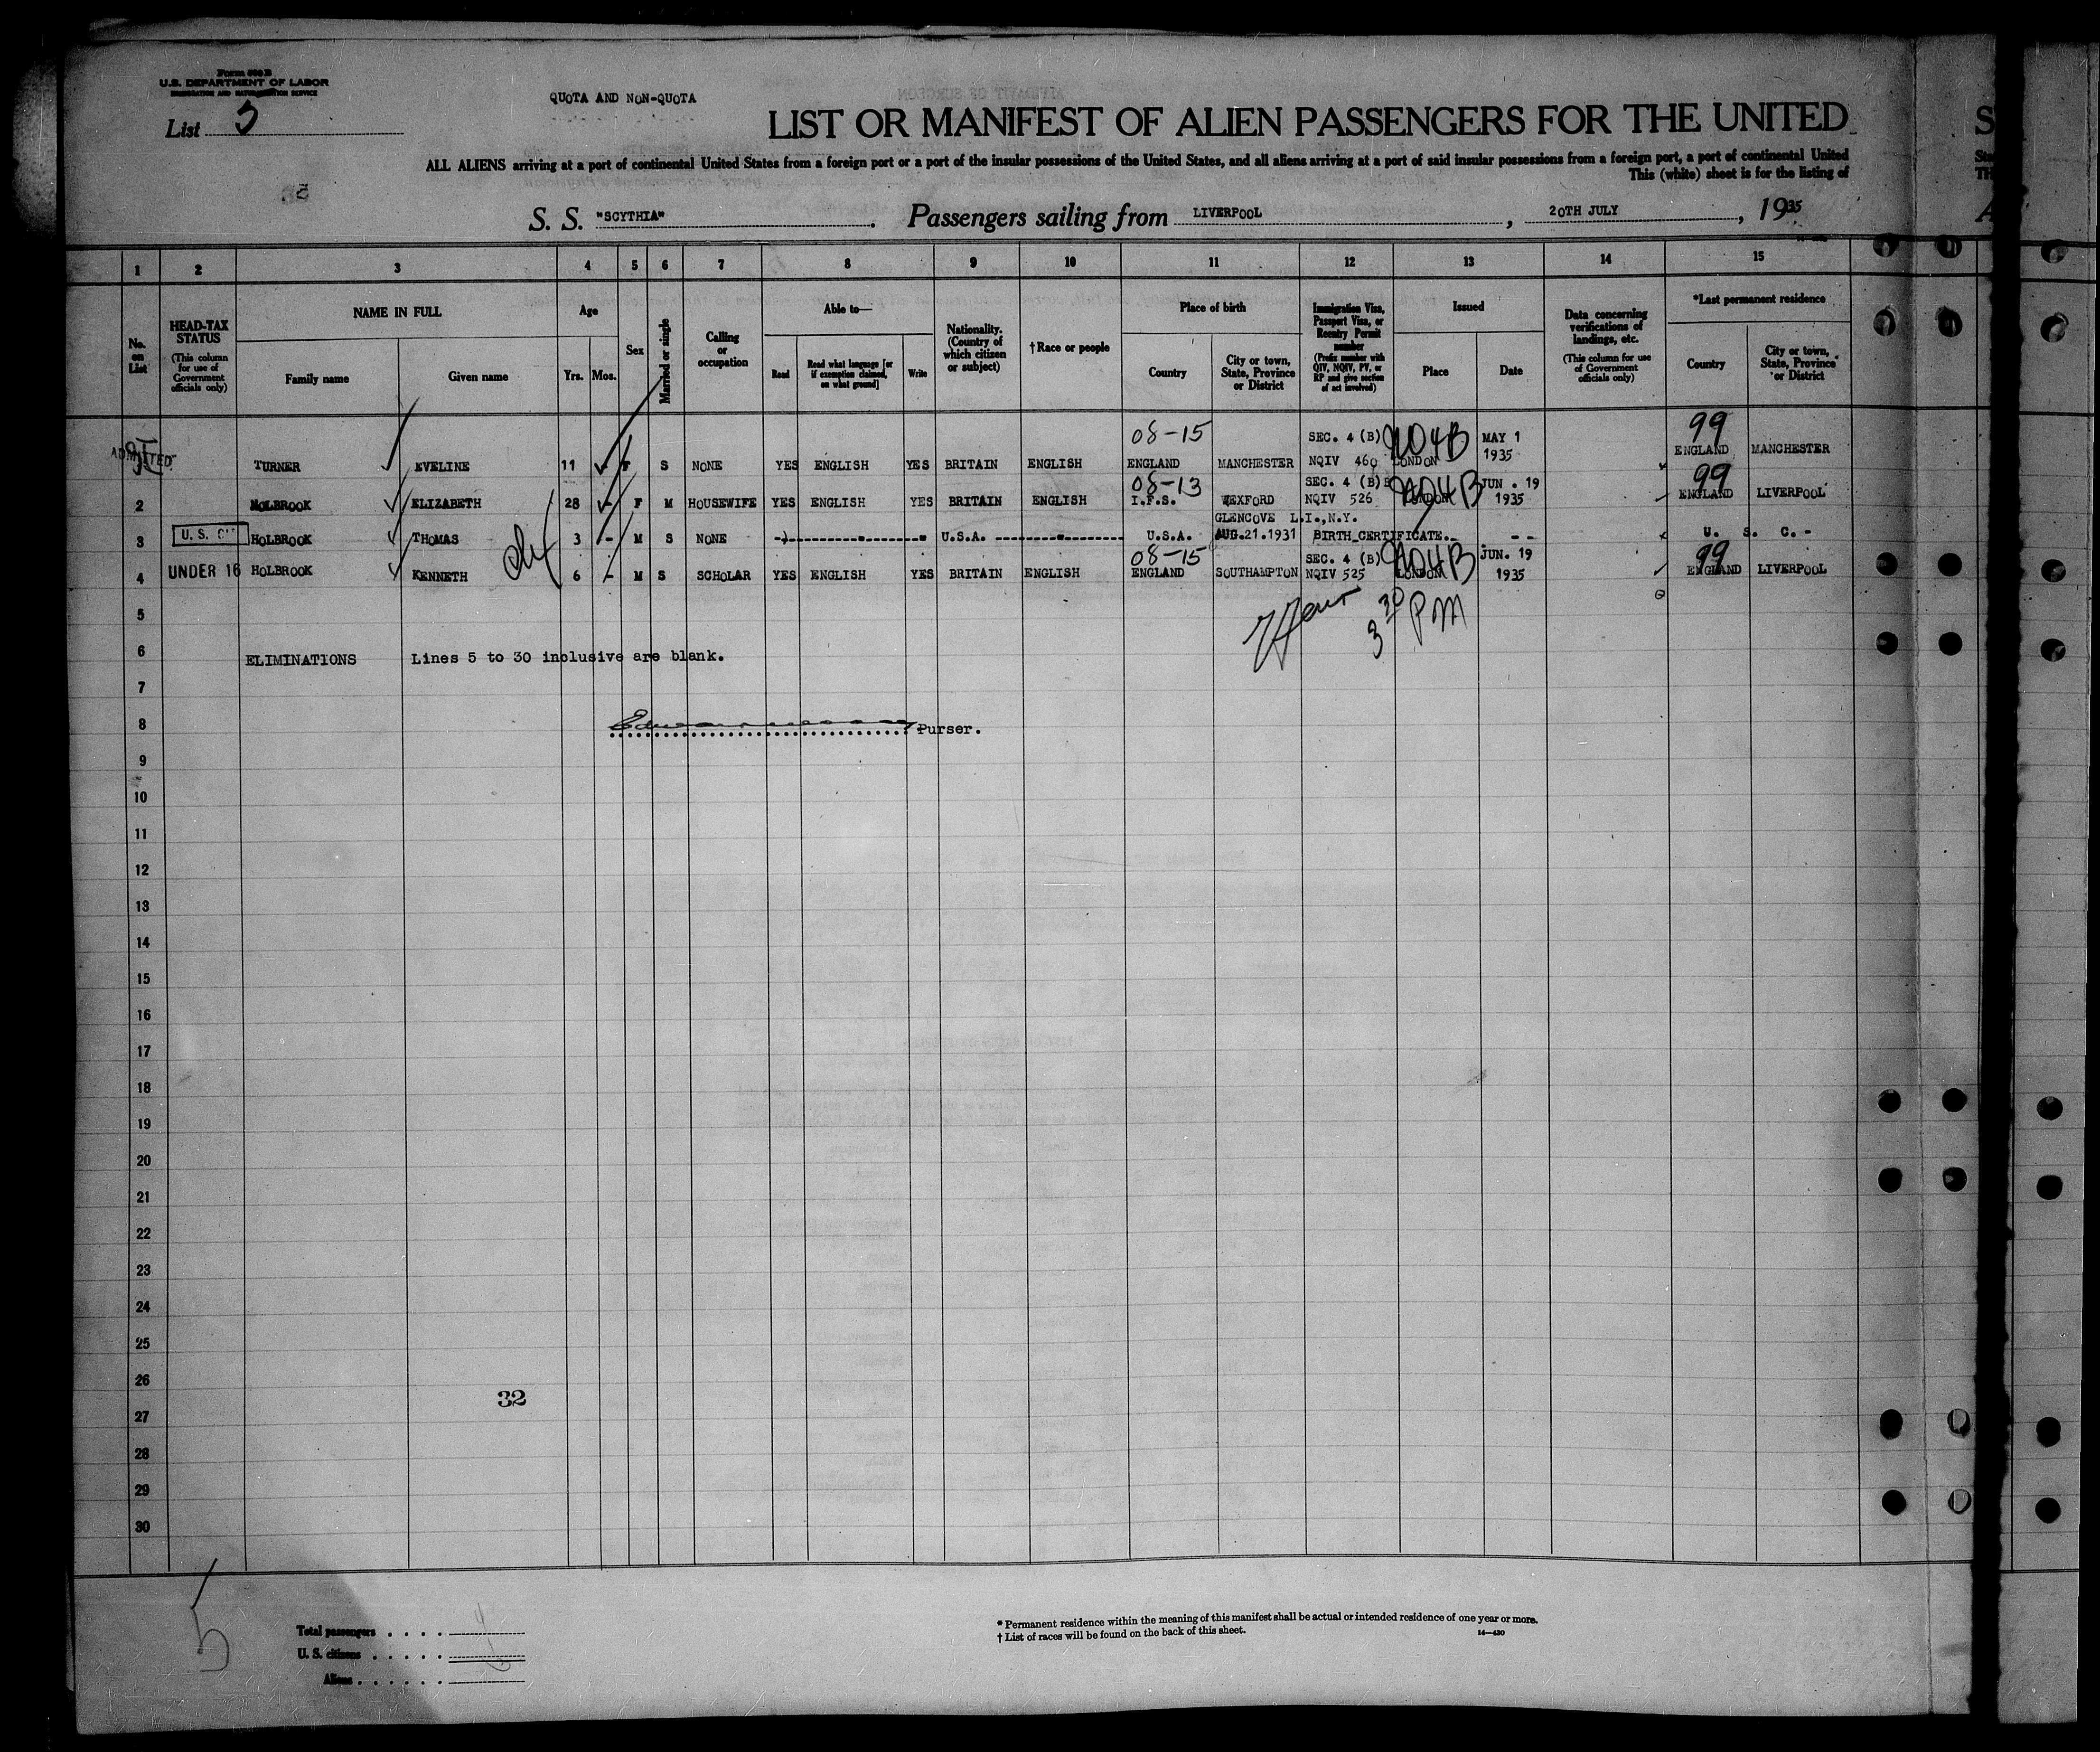 Form 500 B
U.S. DEPARTMENT OF LABOR
IMMIGRATION AND NATURALIZATION SERVICE
List 3
QUOTA AND NON-QUOTA
LIST OR MANIFEST OF ALIEN PASSENGERS FOR THE UNITED
ALL ALIENS arriving at a port of continental United States from a foreign port or a port of the insular possessions of the United States, and all aliens arriving at a port of said insular possessions from a foreign port, a port of continental United
This (white) sheet is for the listing of
S. S. "SCYTHIA". Passengers sailing from LIVERPOOL, 20TH JULY, 1935
1 2 3 4 5 6 7 8 9 10 11 12 13 14 15
No. on List
HEAD-TAX STATUS (This column for use of Government officials only)
NAME IN FULL
Family name Given name
Age
Yrs. Mos.
Sex
Married or single
Calling or occupation
Able to—
Read Read what language [or if exemption claimed, on what ground] Write
Nationality. (Country of which citizen or subject)
†Race or people
Place of birth
Country City or town, State, Province or District
Immigration Visa, Passport Visa, or Reentry Permit number (Prefix number with QIV, NQIV, PV, or RP and give section of act involved)
Issued
Place Date
Data concerning verifications of landings, etc. (This column for use of Government officials only)
*Last permanent residence
Country City or town, State, Province or District
08-15 SEC. 4 (B) MAY 1 99
ADMITTED TURNER EVELINE 11 - F S NONE YES ENGLISH YES BRITAIN ENGLISH ENGLAND MANCHESTER NQIV 460 LONDON 1935 ENGLAND MANCHESTER
08-13 SEC. 4 (B) JUN. 19 99
2 HOLBROOK ELIZABETH 28 - F M HOUSEWIFE YES ENGLISH YES BRITAIN ENGLISH I.F.S. WEXFORD NQIV 526 LONDON 1935 ENGLAND LIVERPOOL
GLENCOVE L.I.,N.Y.
3 U. S. CIT HOLBROOK THOMAS 3 - M S NONE U.S.A. U.S.A. AUG.21.1931 BIRTH CERTIFICATE. - - U. S. C. -
08-15 SEC. 4 (B) JUN. 19 99
4 UNDER 16 HOLBROOK KENNETH 6 - M S SCHOLAR YES ENGLISH YES BRITAIN ENGLISH ENGLAND SOUTHAMPTON NQIV 525 LONDON 1935 ENGLAND LIVERPOOL
5
3 30 PM
6 ELIMINATIONS Lines 5 to 30 inclusive are blank.
7
8 Purser.
9
10
11
12
13
14
15
16
17
18
19
20
21
22
23
24
25
26
32
27
28
29
30
5
Total passengers
U. S. citizens
Aliens
* Permanent residence within the meaning of this manifest shall be actual or intended residence of one year or more.
† List of races will be found on the back of this sheet.
14—430